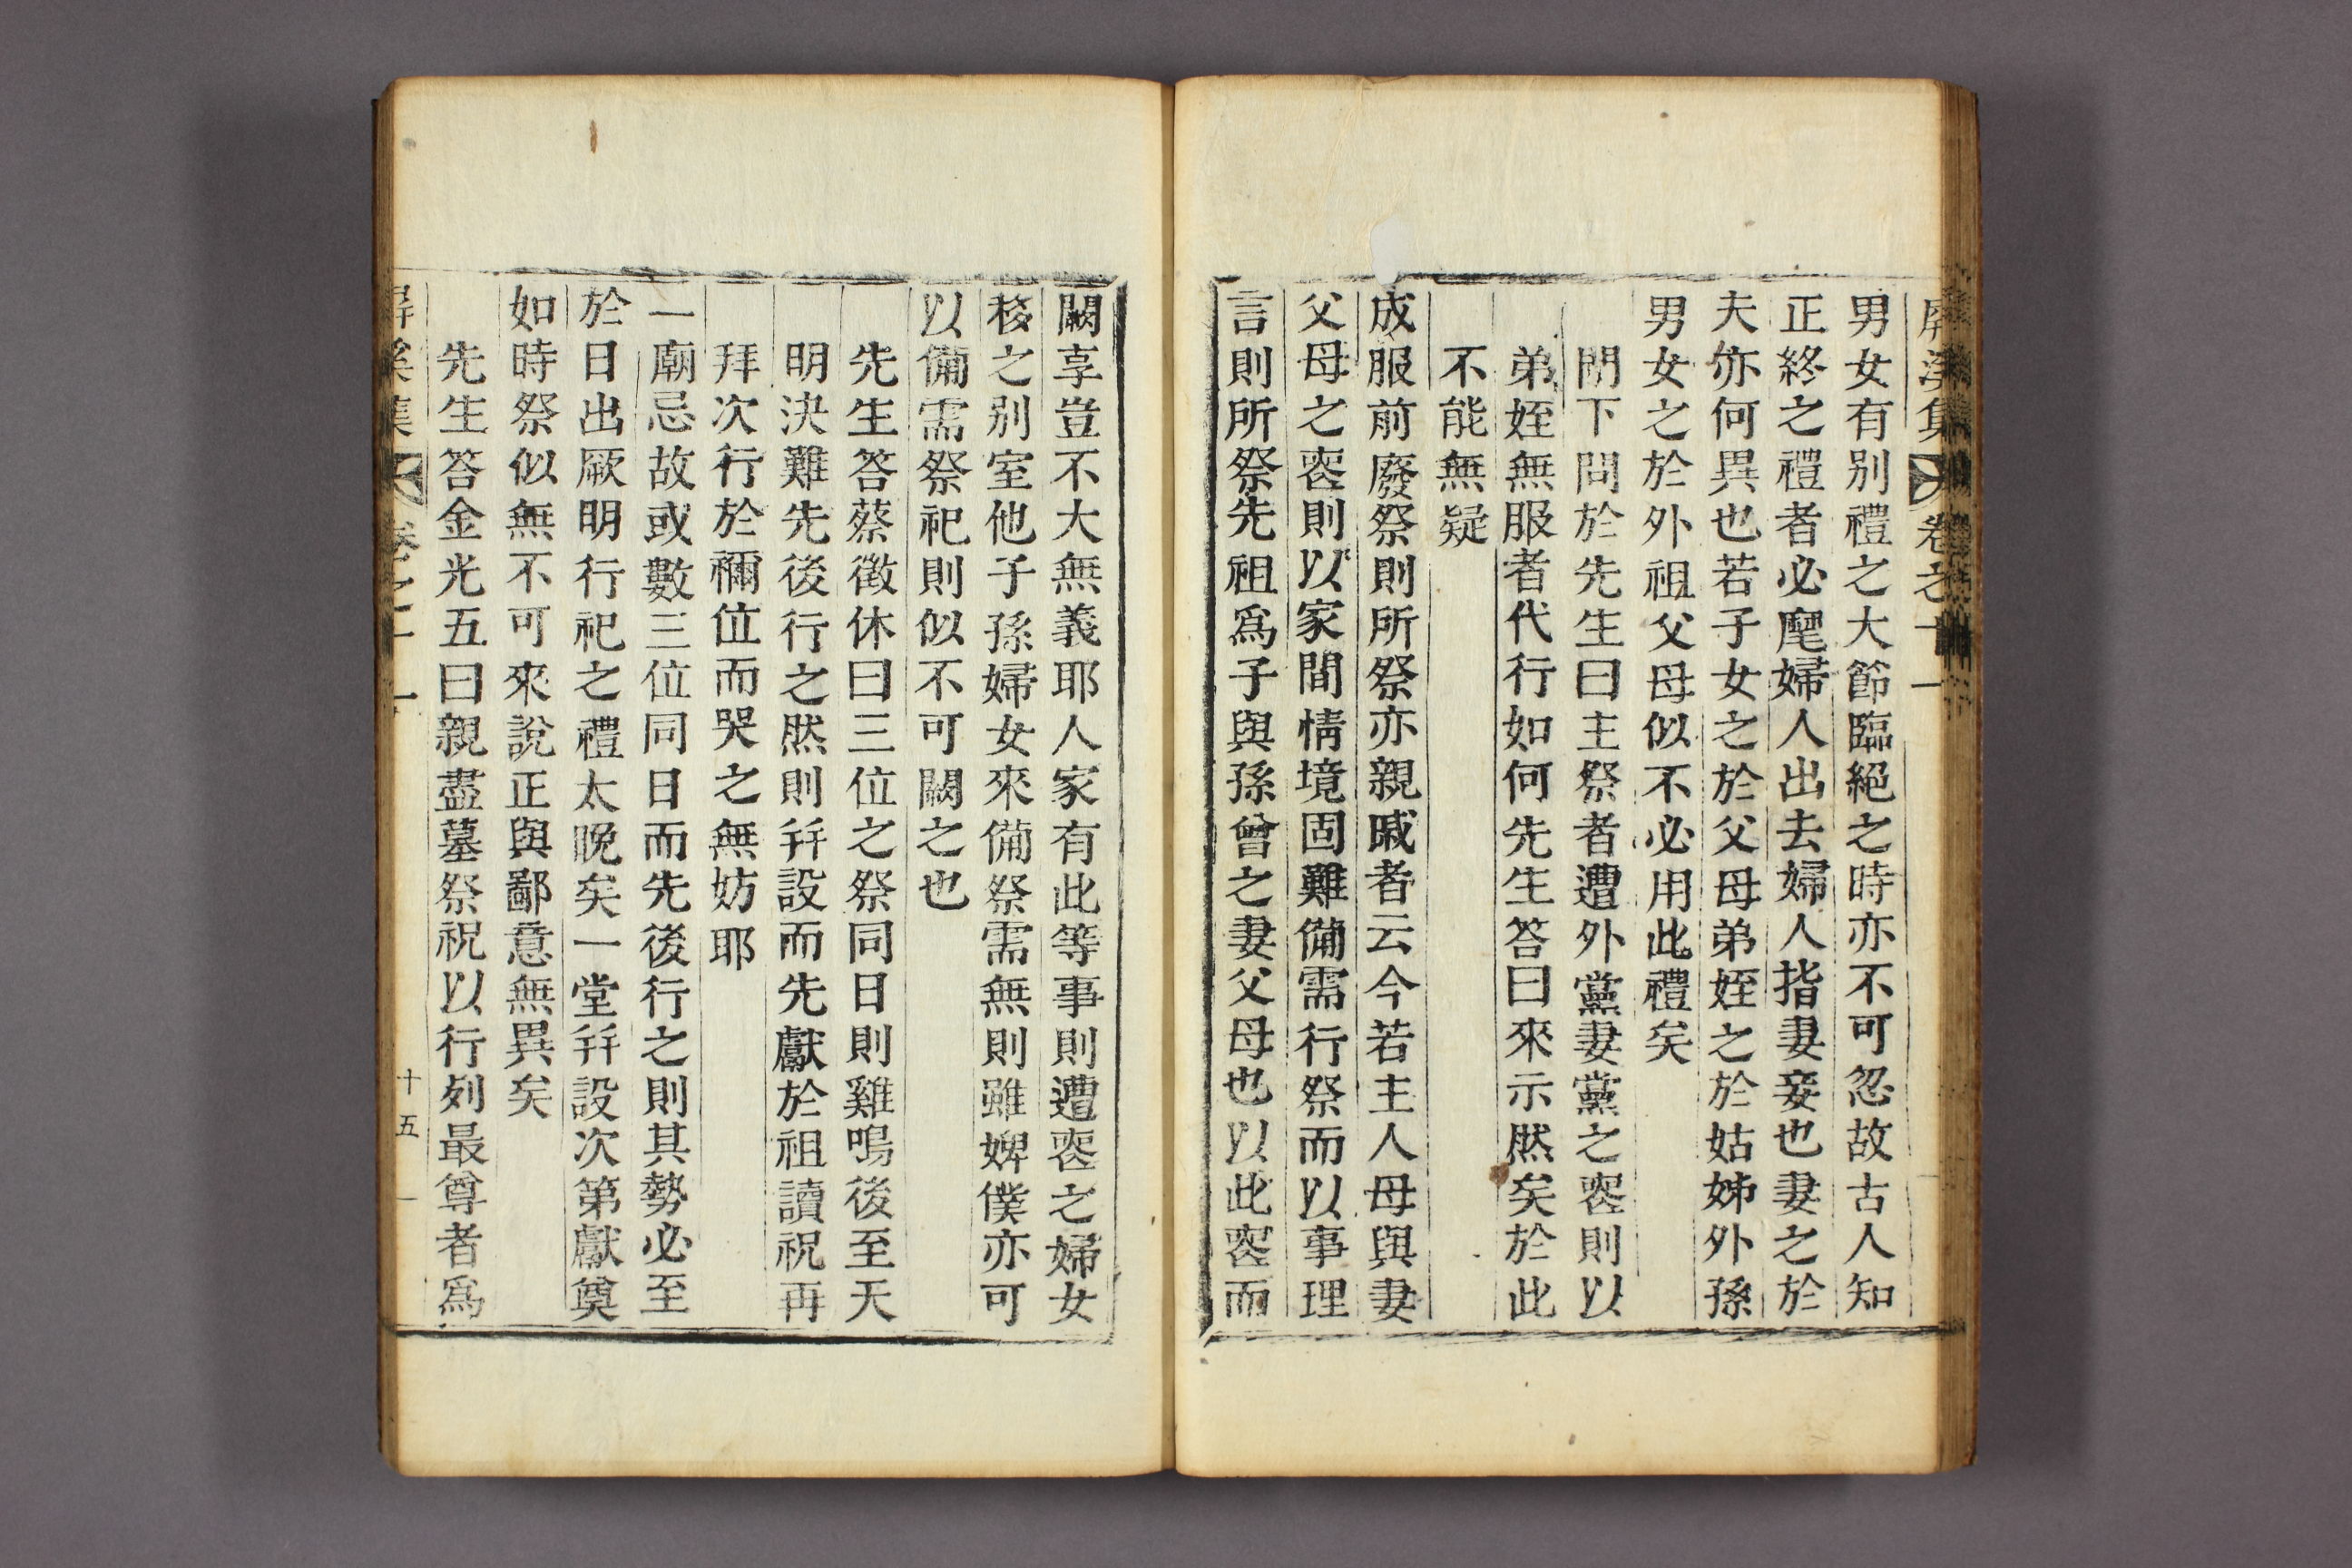 男女有别禮之大節臨絕之時亦不可忽故古人知
正終之禮者必麾婦人出去婦人指妻妾也妻之於
夫亦何異也若子女之於父母弟姪之於姑姊外孫
男女之於外祖父母似不必用此禮矣
閤下問於先生曰主祭者遭外黨妻黨之喪則以
弟姪無服者代行如何先生答曰來示然矣於此
不能無疑
成服前廢祭則所祭亦親戚者云今若主人母與妻
父母之喪則以家間情境固難備需行祭而以事理
言則所祭先祖爲子與孫曾之妻父母也以此喪而
闕享豈不大無義耶人家有此等事則遭喪之婦女
移之別室他子孫婦女來備祭需無則雖婢僕亦可
以備需祭祀則似不可闕之也
先生答蔡徵休曰三位之祭同日則雞鳴後至天
明決難先後行之然則幷設而先獻於祖讀祝再
拜次行於禰位而哭之無妨耶
一廟忌故或數三位同日而先後行之則其勢必至
於日出厥明行祀之禮太晩矣一堂幷設次第獻奠
如時祭似無不可來說正與鄙意無異矣
先生答金光五曰親盡墓祭祝以行列最尊者爲
屛溪集 卷之二十一 十五